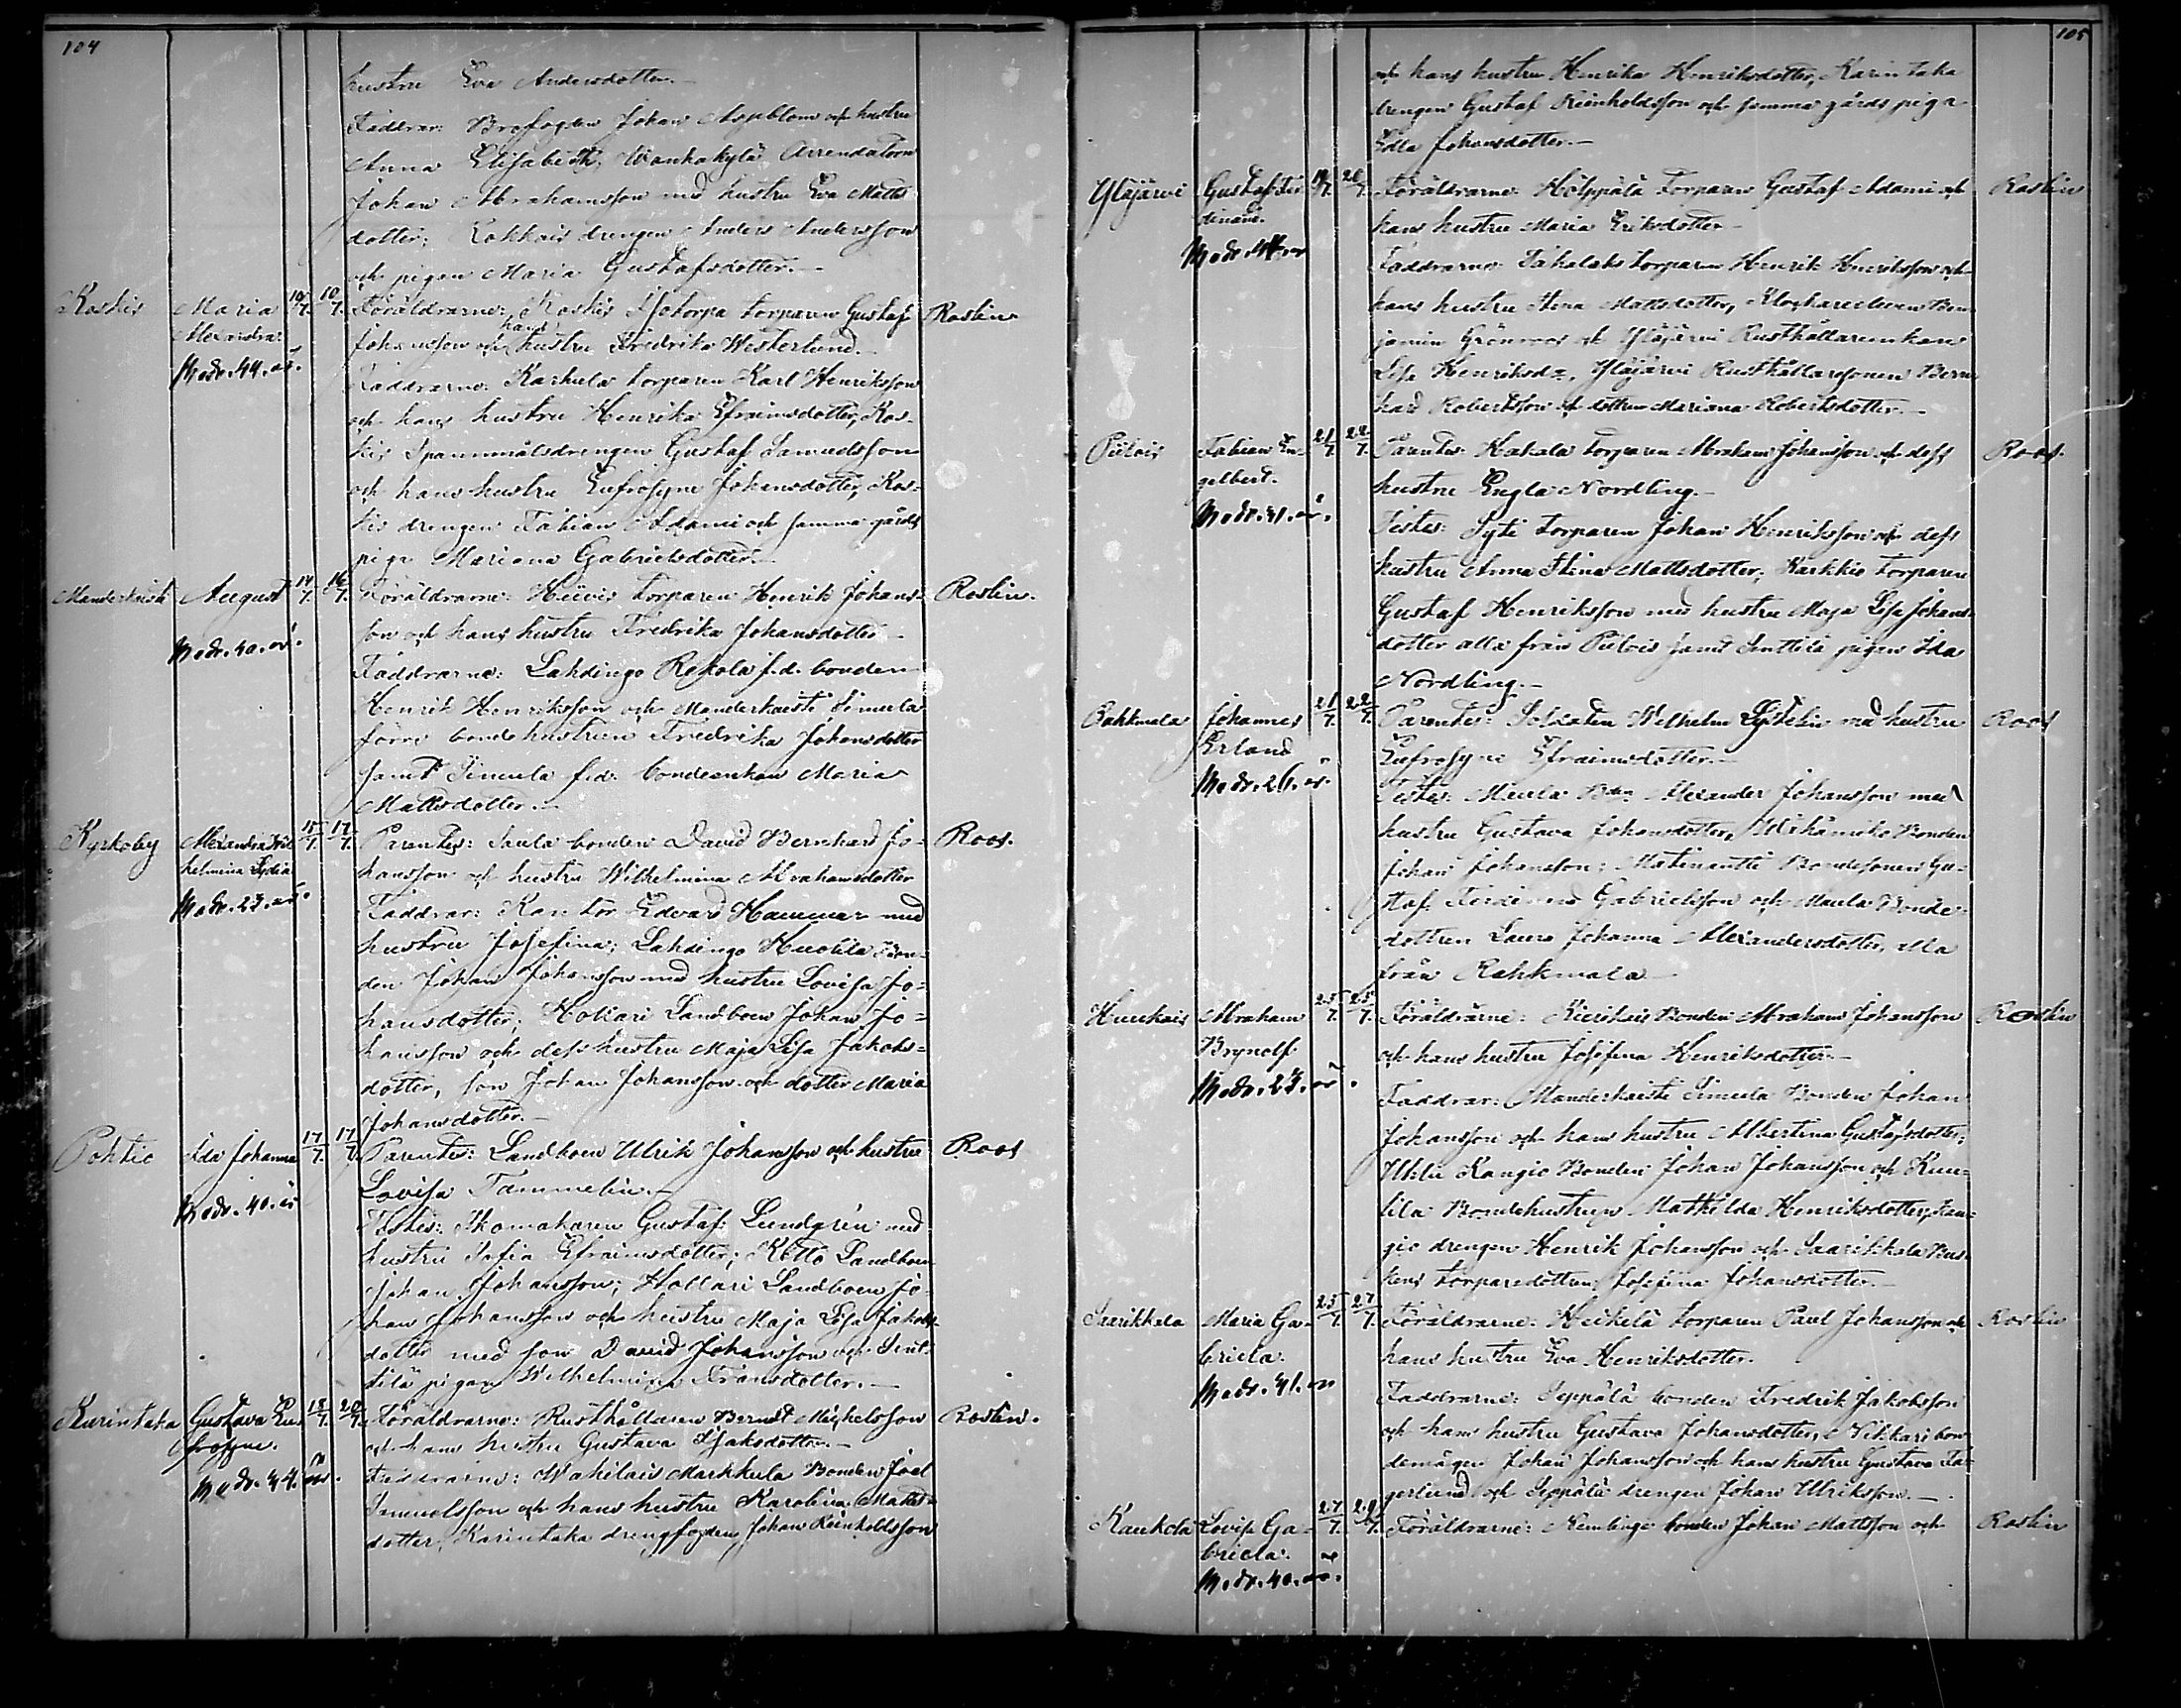 104
hustru Eva Andersdotter.
Faddrar: Brofogden Johan Aspblom och hustru
Anna Elisabeth, Wanhakylä Arrendatorn
Johan Abrahamsson med hustru Eva Matts
dotter; drengen Anders Andersson
och pigan Maria Gustafsdotter.
Koskis Maria 10/7. 10/7. Föräldrarne: Koskis torparen Gustaf Roslin
Alexandra. Johansson och hans hustru Fredrika Westerlund.
Modr. 44. år. Faddrarne: Karhula torparen Karl Henriksson
och hans hustru Henrika Efraimsdotter, Kos-
kis Spannmålsdrengen Gustaf Samuelsson
och hans hustru Eufrosyne Johansdotter, Kos-
kis drengen Fabian Adami och samma gårds
piga Mariana Gabrielsdotter.
Manderkaisti August 14/7. 16/7. Föräldrarne: torparen Henrik Johans- Roslin.
Modr. 40. år. son och hans hustru Fredrika Johansdotter
Faddrarne: Lahdingo Rekola f.d. bonden
Henrik Henriksson och Manderkaisti Simula
förre bondehustrun Fredrika Johansdotter
samt Simula f.d. bondeenkan Maria
Mattsdotter.
Kyrkoby Alexandra Wil 15/7. 17/7. Parentes: Saula bonden David Bernhard Jo- Roos.
helmina Lydia hansson och hustru Wilhelmina Abrahamsdotter
Modr. 23. år. Faddrar: Kantor Edvard Hammar med
hustru Josefina; Lahdingo Huotila Bon-
den Johan Johansson med hustru Lovisa Jo-
hansdotter; Hollari Landboen Johan Jo-
hansson och dess hustru Maja Lisa Jakobs-
dotter, son Johan Johansson och dotter Maria
Johansdotter.
Pohtio Ida Johanna 17/7. 17/7. Parentes: Landboen Ulrik Johansson och hustru Roos
Modr. 40. år Lovisa Tammelin.
Testes: Skomakaren Gustaf Lundgren med
hustru Sofia Efraimsdotter; Kötto Landboen
Johan Johansson; Hollari Landboen Jo-
han Johansson och hustru Maja Lisa Jakobs-
dotter med son David Johansson och Sint-
tilä pigan Wilhelmina Fransdotter.
Karintaka Gustava Eu- 18/7. 20/7. Föräldrarne: Rusthållaren Berndt Michelsson Roslin.
frosyne. och hans hustru Gustava Isaksdotter.
Modr. 44. år. Faddrarne: Wahilais Markkula Bonden Joel
och hans hustru Karolina Matts-
dotter, Karintaka drengfogden Johan Reinholdsson
105
och hans hustru Henrika Henriksdotter, Karintaka
drengen Gustaf Reinholdsson och samma gårds piga
Edla Johansdotter.
Yläjärvi Gustaf Fer 19/7. 20/7. Föräldrarne: Hölppälä torparen Gustaf Adami och Roslin
dinand. hans hustru Maria Eriksdotter
Modr. 44. år Faddrarne: torparen Henrik Henriksson och
hans hustru Stina Mattsdotter, Klockareeleven Ben
jamin Grönroos och Yläjärvi Rusthållareenkan
Lisa Henriksdr, Yläjärvi Rusthållaresonen Bern
hard Robertsson och dottren Mariana Robertsdotter.
Piilois Fabian En- 21/7. 22/7. Parentes: Hakala torparen Abraham Johansson och dess Roos.
gelbert. hustru Engla Nordling.
Modr. 41. år. Testes: Syti torparen Johan Henriksson och dess
hustru Anna Stina Mattsdotter, Karkkis torparen
Gustaf Henriksson med hustru Maja Lisa Johans
dotter alla från Piilois samt Sinttilä pigan Ida
Nordling.
Rahkmala Johannes 21/7. 22/7. Parentes: Soldaten Wilhelm med hustru Roos
Erland Eufrosyne Efraimsdotter.
Modr. 26. år. Testes: Maula Bdn Alexander Johansson med
hustru Gustava Johansdotter, Bonden
Johan Johansson; Matinantti Bondesonen Gu-
staf Ferdinand Gabrielsson och Maula Bonde-
dottren Laura Johanna Alexandersdotter, alla
från Rahkmala
Huukais Abraham 23/7. 25/7. Föräldrarne: Bonden Abraham Johansson Roslin
Brynolf och hans hustru Josefina Henriksdotter.
Modr. 23. år. Faddrar: Manderkaisti Simula Bonden Johan
Johansson och hans hustru Albertina Gustafsdotter;
Uhlu Kangio Bonden Johan Johansson och Kuu-
lila Bondehustrun Mathilda Henriksdotter, Kan-
gio drengen Henrik Johansson och Saarikkala
torparedottren Josefina Johansdotter.
Saarikkala Maria Ga- 25/7. 27/7. Föräldrarne: Heikelä torparen Paul Johansson och Roslin
briela. hans hustru Eva Henriksdotter.
Modr. 41. år Faddrarne: Seppälä bonden Fredrik Jakobsson
och hans hustru Gustava Johansdotter, Nikkari bon
demågen Johan Johansson och hans hustru Gustava Fa-
gerlund och Seppälä drengen Johan Ulriksson.
Kaukola Lovisa Ga- 27/7. 29/7. Föräldrarne: Nemlinge bonden Johan Mattsson och Roslin
briela.
Modr. 40. år.